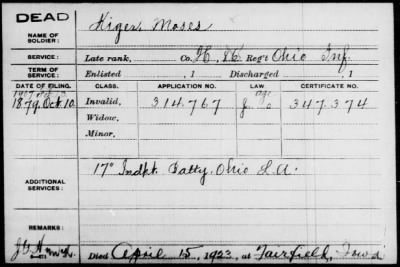 DEAD
Kiger, Moses
NAME OF SOLDIER:
SERVICE: Late rank, Co. H, 86 Reg't Ohio Inf.
TERM OF SERVICE: Enlisted , 1 Discharged , 1
DATE OF FILING. CLASS. APPLICATION NO. LAW CERTIFICATE NO.
1879, Oct. 10. Invalid, 314.767 347.374
Widow,
Minor.
ADDITIONAL SERVICES: 17" Indpt. Batty, Ohio L.A.
REMARKS:
Died April 15, 1923, at Fairfield, Iowa